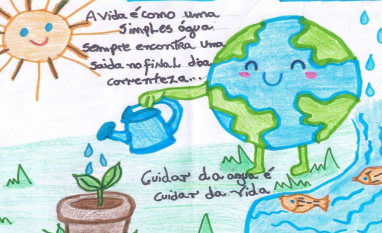 A vida é como uma
simples água
sempre encontra uma
saída no final da
correnteza...
Cuidar da água é
cuidar da vida